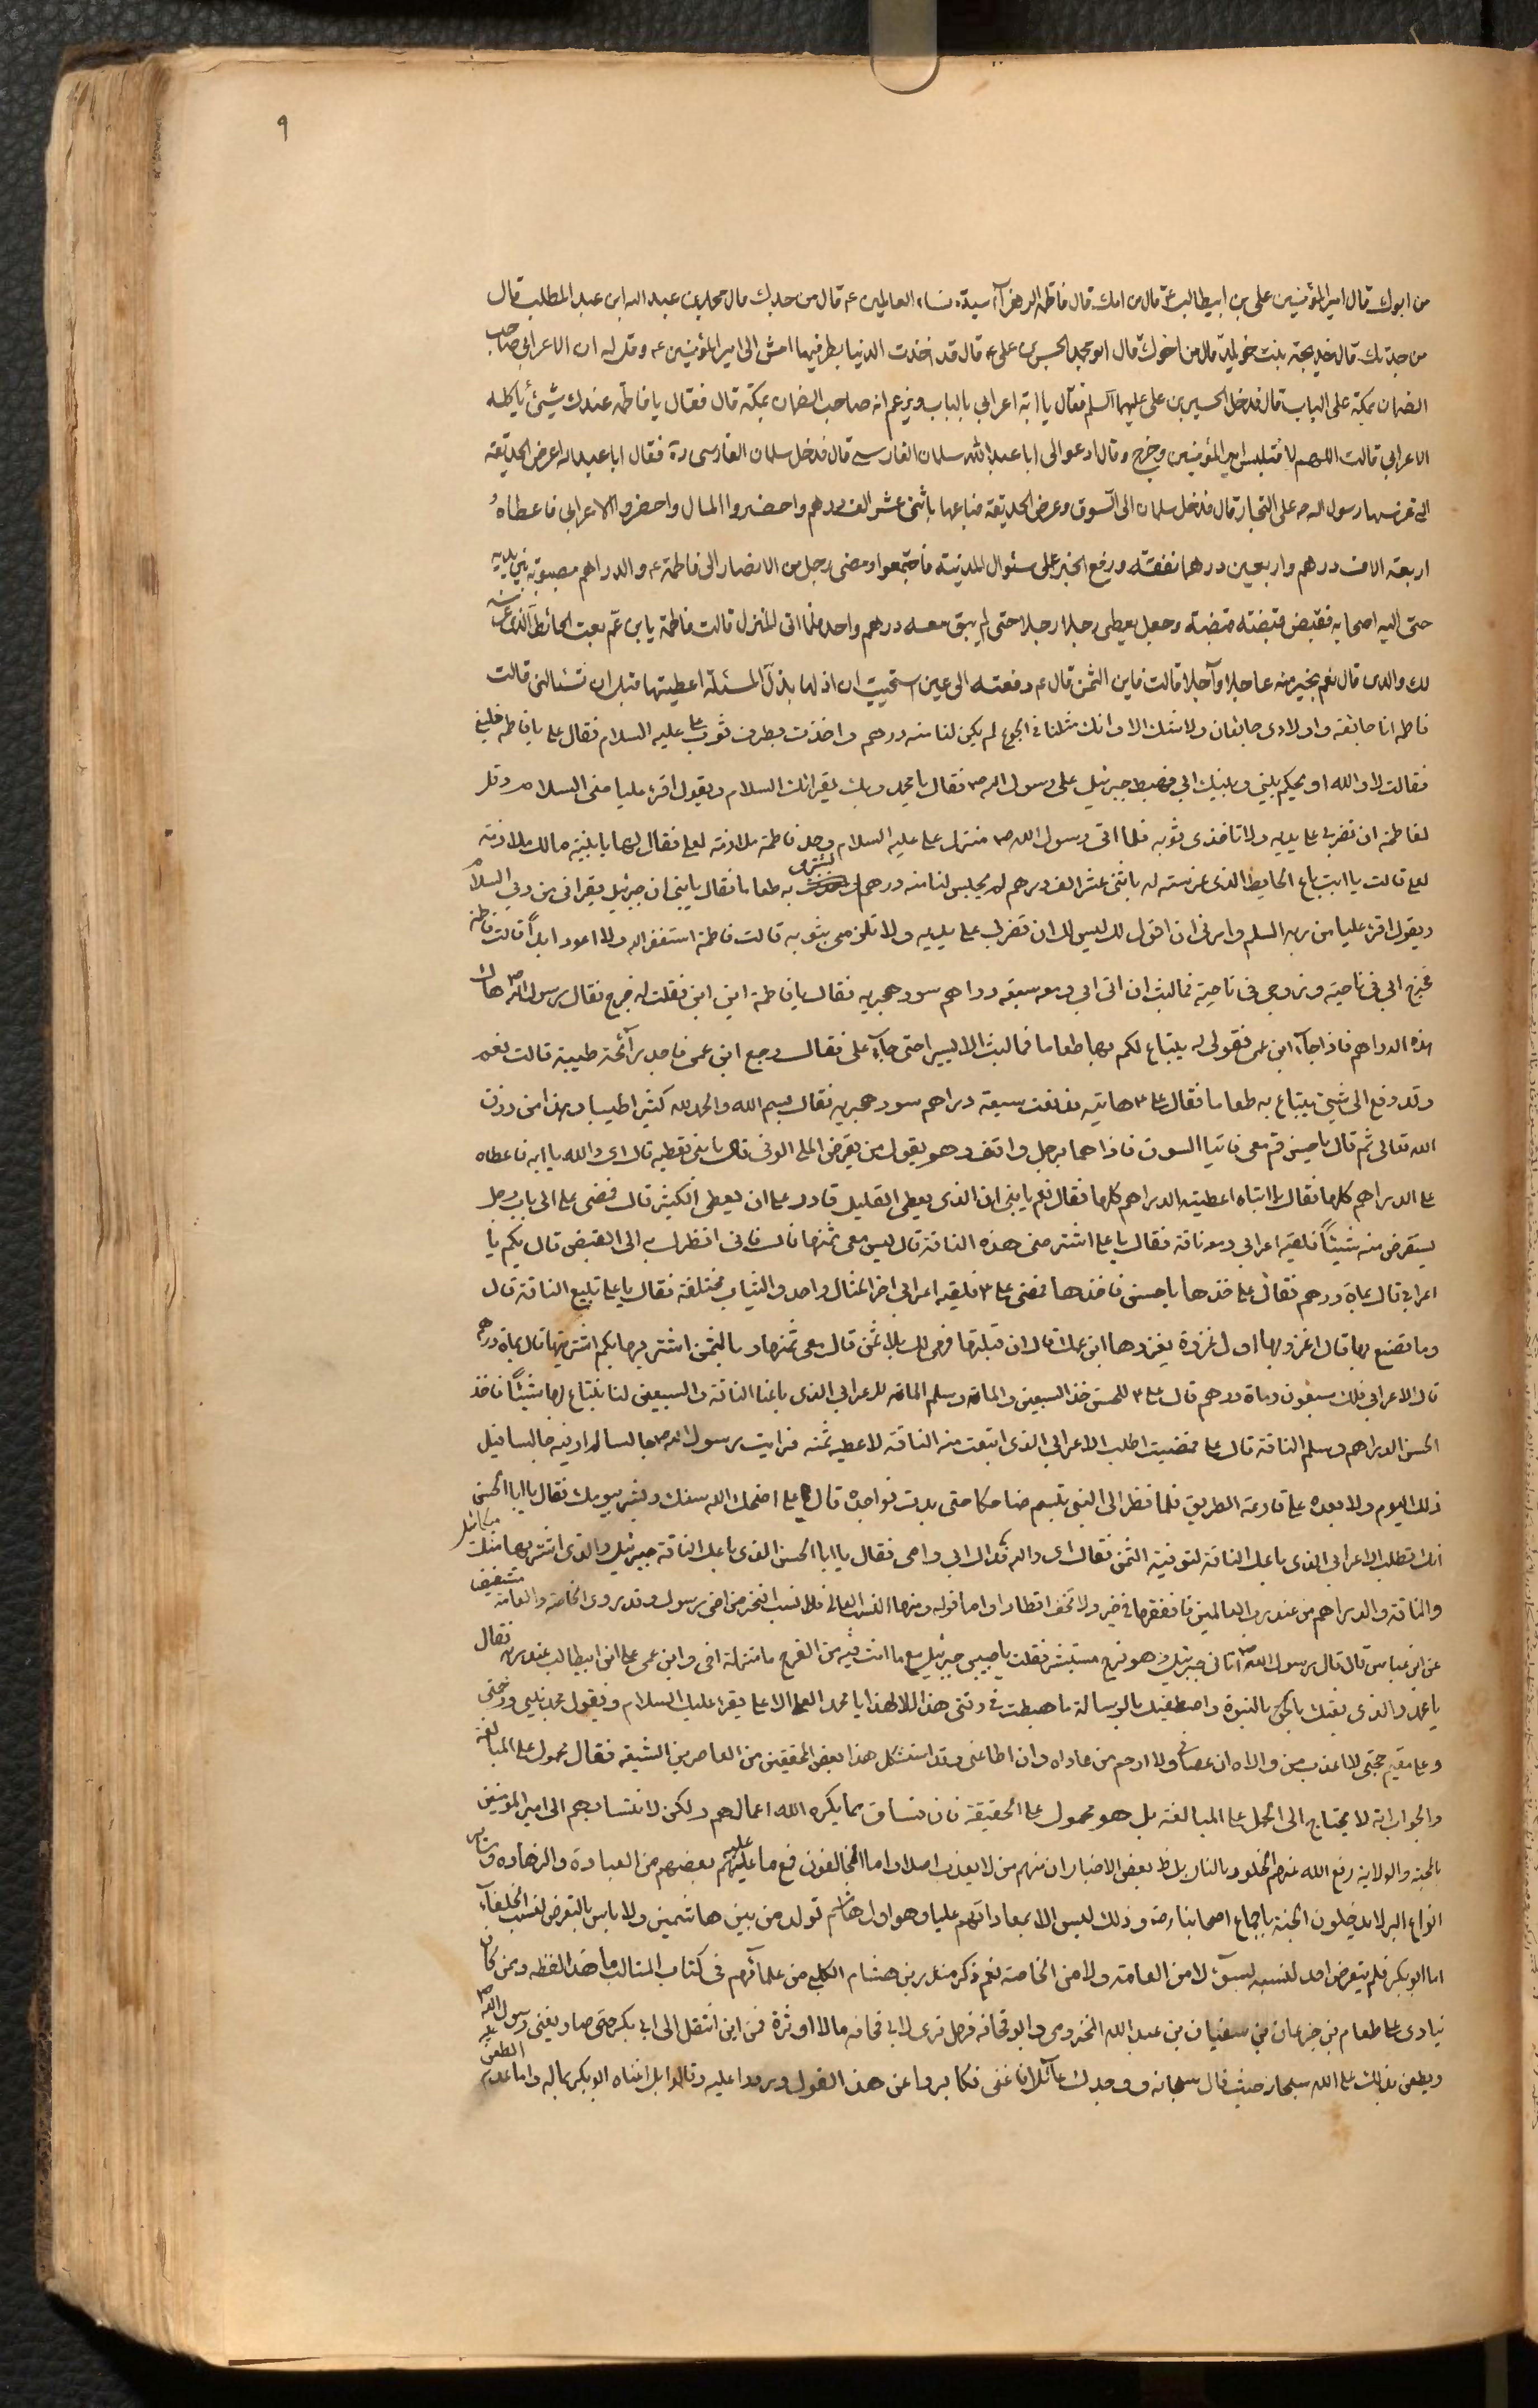 ٩
من ابوك قال امير المؤمنين علي بن ابيطالب ع قال من امك قال فاطمة الزهرآء سيدة نساء العالمين ع قال من جدك قال محمد بن عبد الله ابن عبد المطلب قال
من جدتك قال خديجة بنت خويلد قال من اخوك قال ابو محمد الحسن بن علي ع قال قد اخذت الدنيا بطرفيها امش الى امير المؤمنين ع وقل له ان الاعرابي صاحب
الضمان بمكة على الباب قال فدخل الحسين بن علي عليهما السلم فقال يا ابة اعرابي بالباب ويزعم انه صاحب الضمان بمكة قال فقال يا فاطمة عندك شيئ يأكله
الاعرابي قالت اللهم لا فتلبس امير المؤمنين وخرج وقال ادعوا لى ابا عبد الله سلمان الفارسي قال فدخل سلمان الفارسى ره فقال ابا عبد الله اعرض الحديقة
التي غرسها رسول الله ص على التجار قال فدخل سلمان الى السوق وعرض الحديقة فباعها باثنى عشر الف درهم واحضروا المال واحضروا الاعرابي فاعطاهُ
اربعة الاف درهم واربعين درهما نفقته ورفع الخبر على سئوال المدينة فاجتمعوا ومضى رجل من الانصار الى فاطمة ع والدراهم مصبوبة بين يديه
حتى اليه اصحابه فقبض قبضته قبضته وجعل يعطى رجلا رجلا حتى لم يبق معه درهم واحد فلما اتى المنزل قالت فاطمة يا بن عم بعت الحائط الذى غرسه
لك والدى قال نعم بخير منه عاجلا وآجلا قالت فاين الثمن قال ع دفعته الى عين استحييت ان اذلها بذل المسئلة اعطيتها قبل ان تسئالنى قالت
فاطمة انا جائعة واولادى جايعان ولا شك الا وانك مثلنا فى الجوع لم يكن لنا منه درهم واخذت بطرف ثوب علي عليه السلام فقال علي يا فاطمة خليني
فقالت لا والله او يحكم بيني وبينك ابي فهبط جبرئيل على رسول الله ص فقال يا محمد ربك يقرائك السلام ويقول اقرء عليا منى السلام وقل
لفاطمة ان تضربى على يديه ولا تاخذى بثوبه فلما اتى رسول الله ص منزل علي عليه السلام وجد فاطمة ملازمة لعلي فقال لها يا بنية ما لك ملازمة
لعلي قالت يا ابت باع الحايط الذى غرسته له باثنى عشر الف درهم لم يحبس لنا منه درهم نشتري به طعاما فقال يا بنى ان جبرئيل يقرانى من ربي السلام
ويقول اقرء عليا من ربه السلم وامرنى ان اقول لك ليس لك ان تضربى علي يديه ولا تلزمى بثوبه قالت فاطمة استغفر الله ولا اعود ابداً قالت فاطمة
فخرج ابي فى ناحية وزوجى فى ناحية فما لبث ان اتى ابي ومعه سبعة دراهم سود هجريه فقال يا فاطمة اين ابن فقلت له خرج فقال رسول الله ص هاك
هذه الدراهم فاذا جآء ابن عمى فقولى له يبتاع لكم بها طعاما فما لبث الا يسيرا حتى جآء علي فقال رجع ابن عمى فاجد رآئحة طيبة قالت نعم
وقد دفع الى شيئ يبتاع به طعاما فقال علي ع هاتيه فدفعت سبعة دراهم سود هجريه فقال بسم الله والحمد لله كثيرا طيبا وهذا من رزق
الله تعالى ثم قال يا حسن قم معى فاتيا السوق فاذا هما برجل واقف وهو يقول من يقرض الملي الوفى قال يا بنى نعطيه قال اى والله يا ابه فاعطاه
علي الدراهم كلها فقال يا ابتاه اعطيته الدراهم كلها فقال نعم يا بنى ان الذى يعطى القليل قادر على ان يعطى الكثير قال فمضى علي الى باب رجل
يستقرض منه شيئاً فلقيه اعرابي ومعه ناقة فقال يا علي اشتر منى هذه الناقة قال ليس معى ثمنها قال فانى انظرك به الى القبض قال بكم يا
اعرابى قال بماة درهم فقال علي خذها يا حسن فاخذها فمضى علي ع فلقيه اعرابي اخر المثال واحد والثياب مختلفة فقال يا علي تبيع الناقة قال
وما تصنع بها قال اغزو بها اول غزوة يغزوها ابن عمك قال ان قبلتها فهى لك بلا ثمن قال معى ثمنها وبالثمن اشتريها بكم اشتريتها قال بماة درهم
قال الاعرابي فلك سبعون وماة درهم قال علي ع للحسن خذ السبعين والماة وسلم الماة للاعرابي الذى باعنا الناقة والسبعين لنا نبتاع بها شيئاً فاخذ
الحسن الدراهم وسلم الناقة قال علي فمضيت اطلب الاعرابي الذى ابتعت منه الناقة لاعطيه ثمنه فرايت رسول الله ص جالسا لم ار فيه جالسا قبل
ذلك اليوم ولا بعده على قارعة الطريق فلما نظر الى النبى تبسم ضاحكا حتى بدت نواجده قال علي اضحك الله سنك وبشر بيومك فقال يا ابا الحسن
انك تطلب الاعرابي الذى باعك الناقة لتوفية الثمن فقلت اى والله فداك ابى وامى فقال يا ابا الحسن الذى باعك الناقة جبرئيل والذى اشتريها منك ميكائيل
والناقة والدراهم من عند رب العالمين فانفقها في خير ولا تخف اقتارا واما قوله ومنها النسب العالى فلا نسب افخر من اخى رسول وقد روى الخاصة والعامة
عن ابن عباس قال قال رسول الله ص اتانى جبرئيل وهو فرح مستبشر فقلت يا حبيبى جبرئيل مع ما انت فيه من الفرح ما منزلة اخى وابن عمى علي ابن ابيطالب عند ربه فقال
يا محمد والذى بعثك بالحق بالنبوة واصطفيك بالرسالة ما هبطت فى وقتى هذا الا لهذا يا محمد العلي الاعلى يقرء عليك السلام ويقول محمد نبيى ورحمتى
وعلي مقيم حجتى لا اعذب من والاه وان عصانى ولا ارحم من عاداه وان اطاعنى وقد استشكل هذا بعض المحققين من المعاصرين الشيعة فقال محمول على المبالغة
والجواب انه لا يحتاج الى الحمل على المبالغة بل هو محمول على الحقيقة فان فساق بما يكره الله اعمالهم ولكن لانتسابهم الى امير المؤمنين
بالمحبة والولاية رفع الله عنهم الخلود بالنار بل ظ بعض الاخبار ان منهم من لا يعذب اصلا واما المخالفون فمع ما عليه بعضهم من العبادة والزهادة وساير
انواع البر لا يدخلون الجنة باجماع اصحابنا رض وذلك ليس الا بمعاداتهم عليا وهو اول هاشم تولد من بين هاشميين ولا باس بالتعرض لنسب الخلفآء
اما ابو بكر فلم يتعرض احد لنسبه بسوء لا من العامة ولا من الخاصة نعم ذكر منذر بن هشام الكلبى من علمآئهم فى كتاب المثالب ما هذا لفظه وممن كان
ينادى على طعام بن جزعان بن سفيان بن عبد الله المخزومى وابو قحافة فرحل ترى لابى قحافه مالا او ثرة فمن اين انتقل الى ابي بكر حتى صار يغنى رسول الله ص
ويطعن بذلك على الله سبحانه حيث قال سبحانه ووجدك عآئلا فاغنى فكابروا عن هذا القول وبردوا عليه وقالوا بل اغناه ابو بكر بماله واما عمر